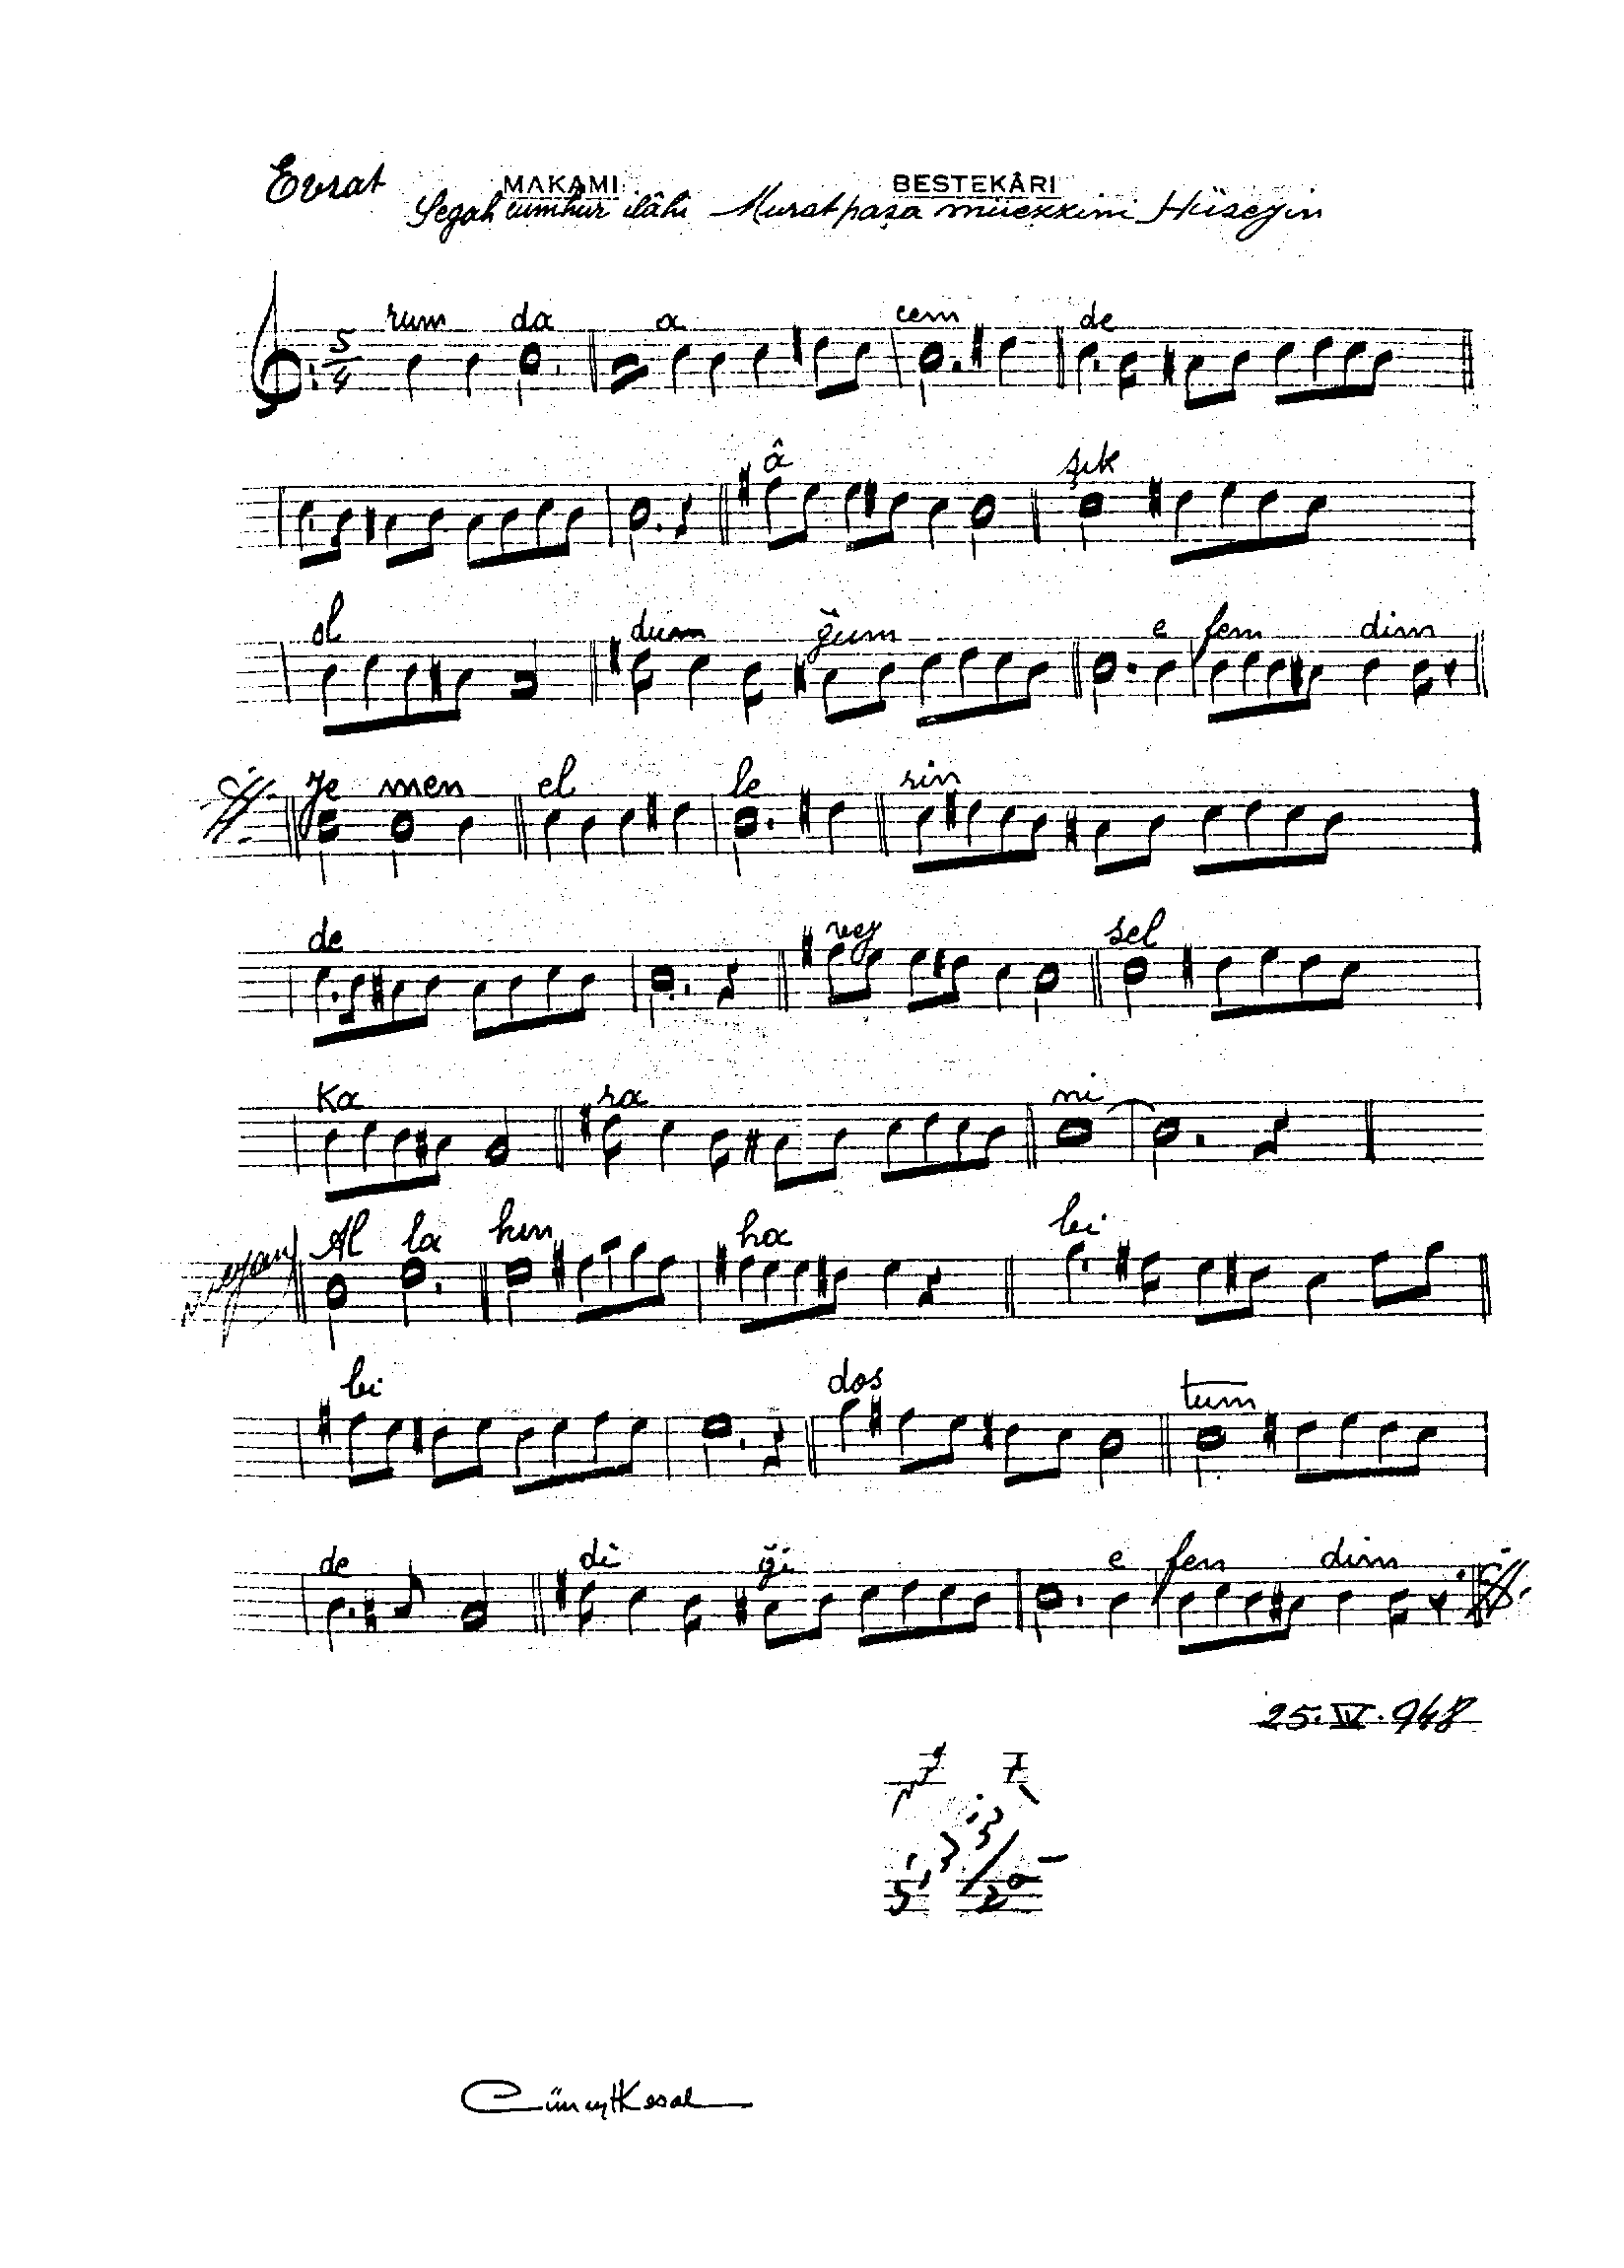 Evsat MAKAMI BESTEKÂRI
Segah cumhur ilâhi Muratpaşa müezzini Hüseyin
5/4 rum da a cem de
â şık
ol dum ğum e fem dim
Ye men el le rin
de vey sel
Ka ra ni
Meyan Al la hın ha bi
bi dos tum
de di ği e fen dim
25. IV. 948
Cüneyt Kosal